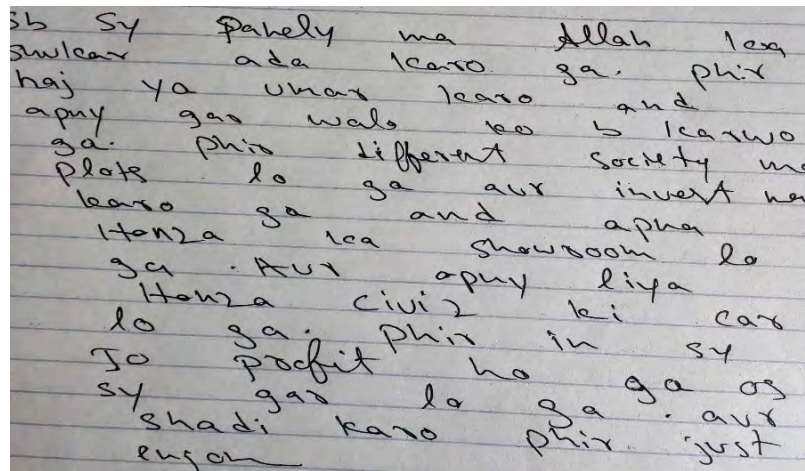 sb sy pahely ma Allah ka
shukar ada karo ga. phir
haj ya umar karo and
apny gar walo ko b karwo
ga. phir different society ma
plots lo ga aur invest
karo ga and apna
Honza ka showroom lo
ga. Aur apny liya
Honza civiz ki car
lo ga. phir in sy
Jo profit ho ga os
sy gar lo ga. aur
shadi karo phir just